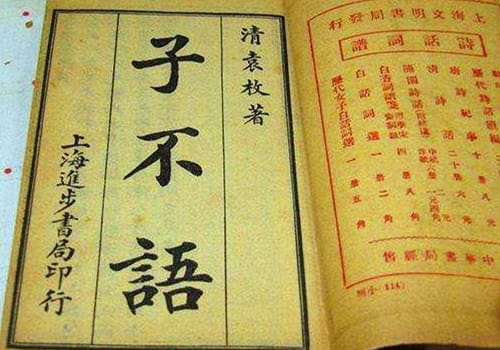 清袁枚著
子不語
上海進步書局印行
上海文明書局發行
詩話詞譜
歷代詩話續編
唐詩紀事
清詩話
隨園詩話
白香詞譜箋
白話詞選 一册 二角
歷代女子白話詞選 一册 五角
中華書局經售